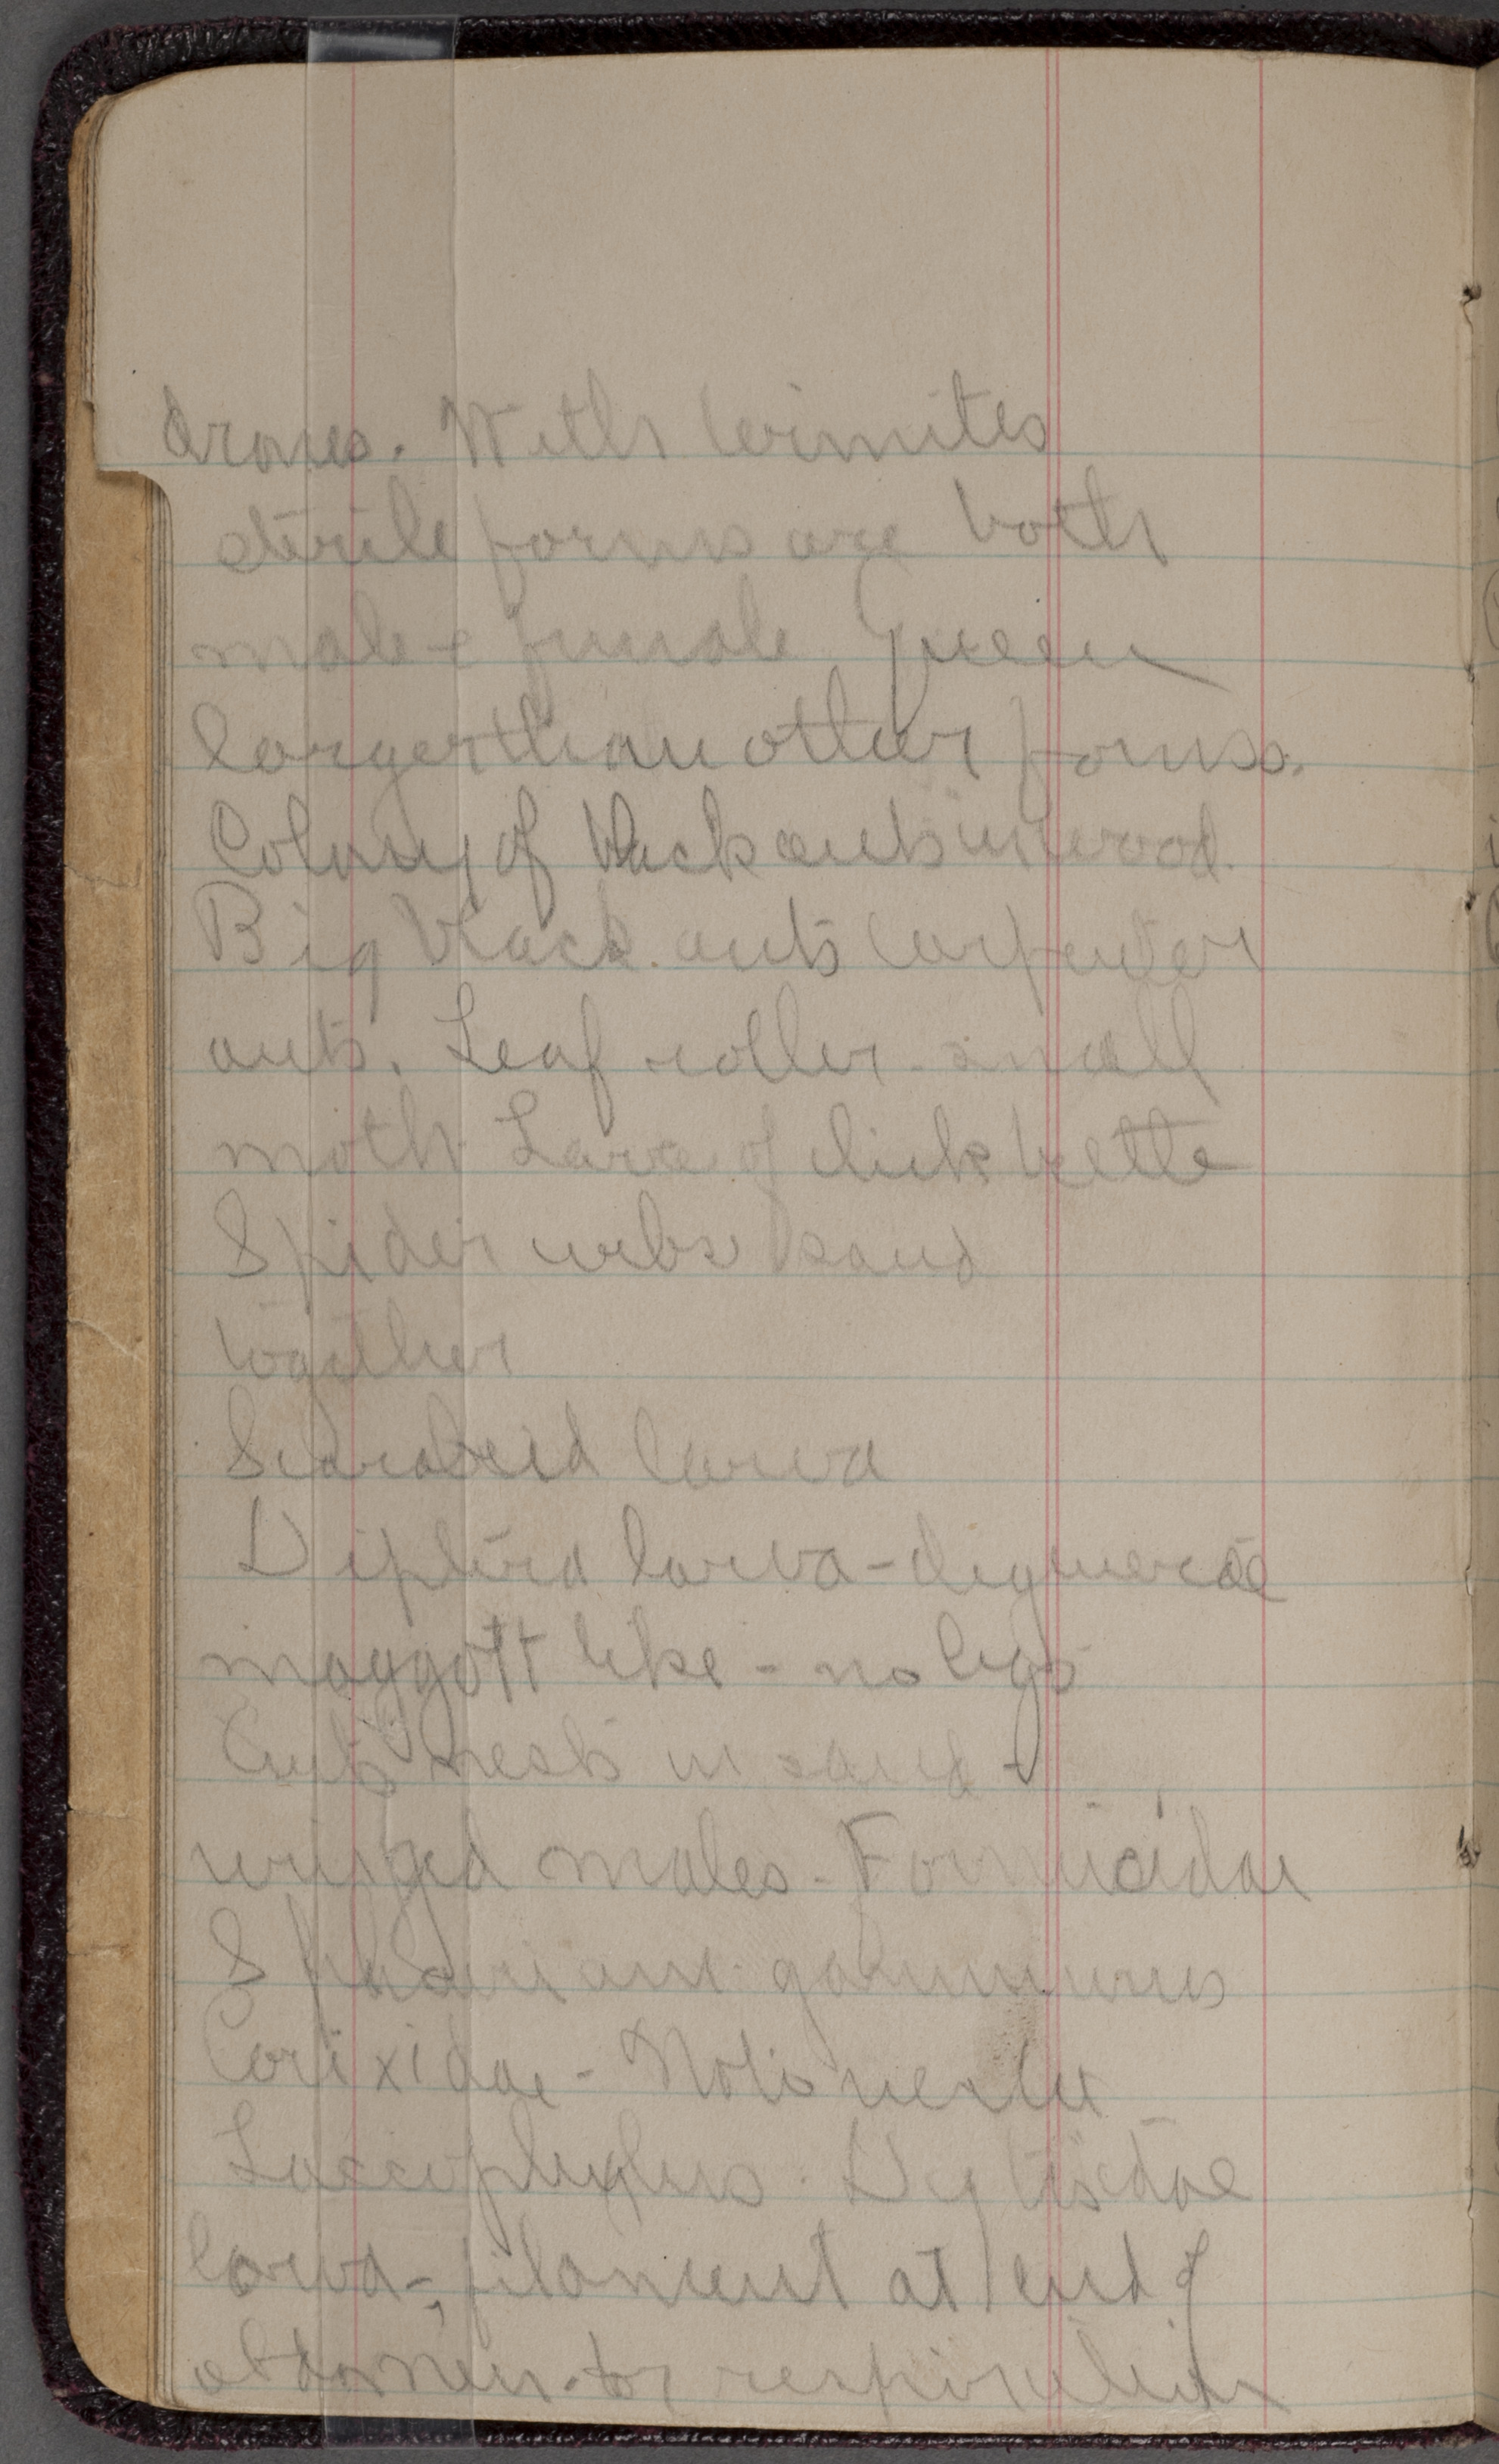 drones. With termites
sterile forms are both
male & female Queen
larger than other forms.
Colony of black ants in wood.
Big black ants carpenter
ants. Leaf roller - small
moth Larva of click bettle
Spider webs sand
together
Scarabeid larva
Diptera larva - degenerate
maggott like - no legs
Ants nests in sand -
winged males - Formicidae
Sphaerium gammurus
Corixidae - Notonecta
Laccophylus - Dytiscidae
larva - filament at end of
abdomen for respiration